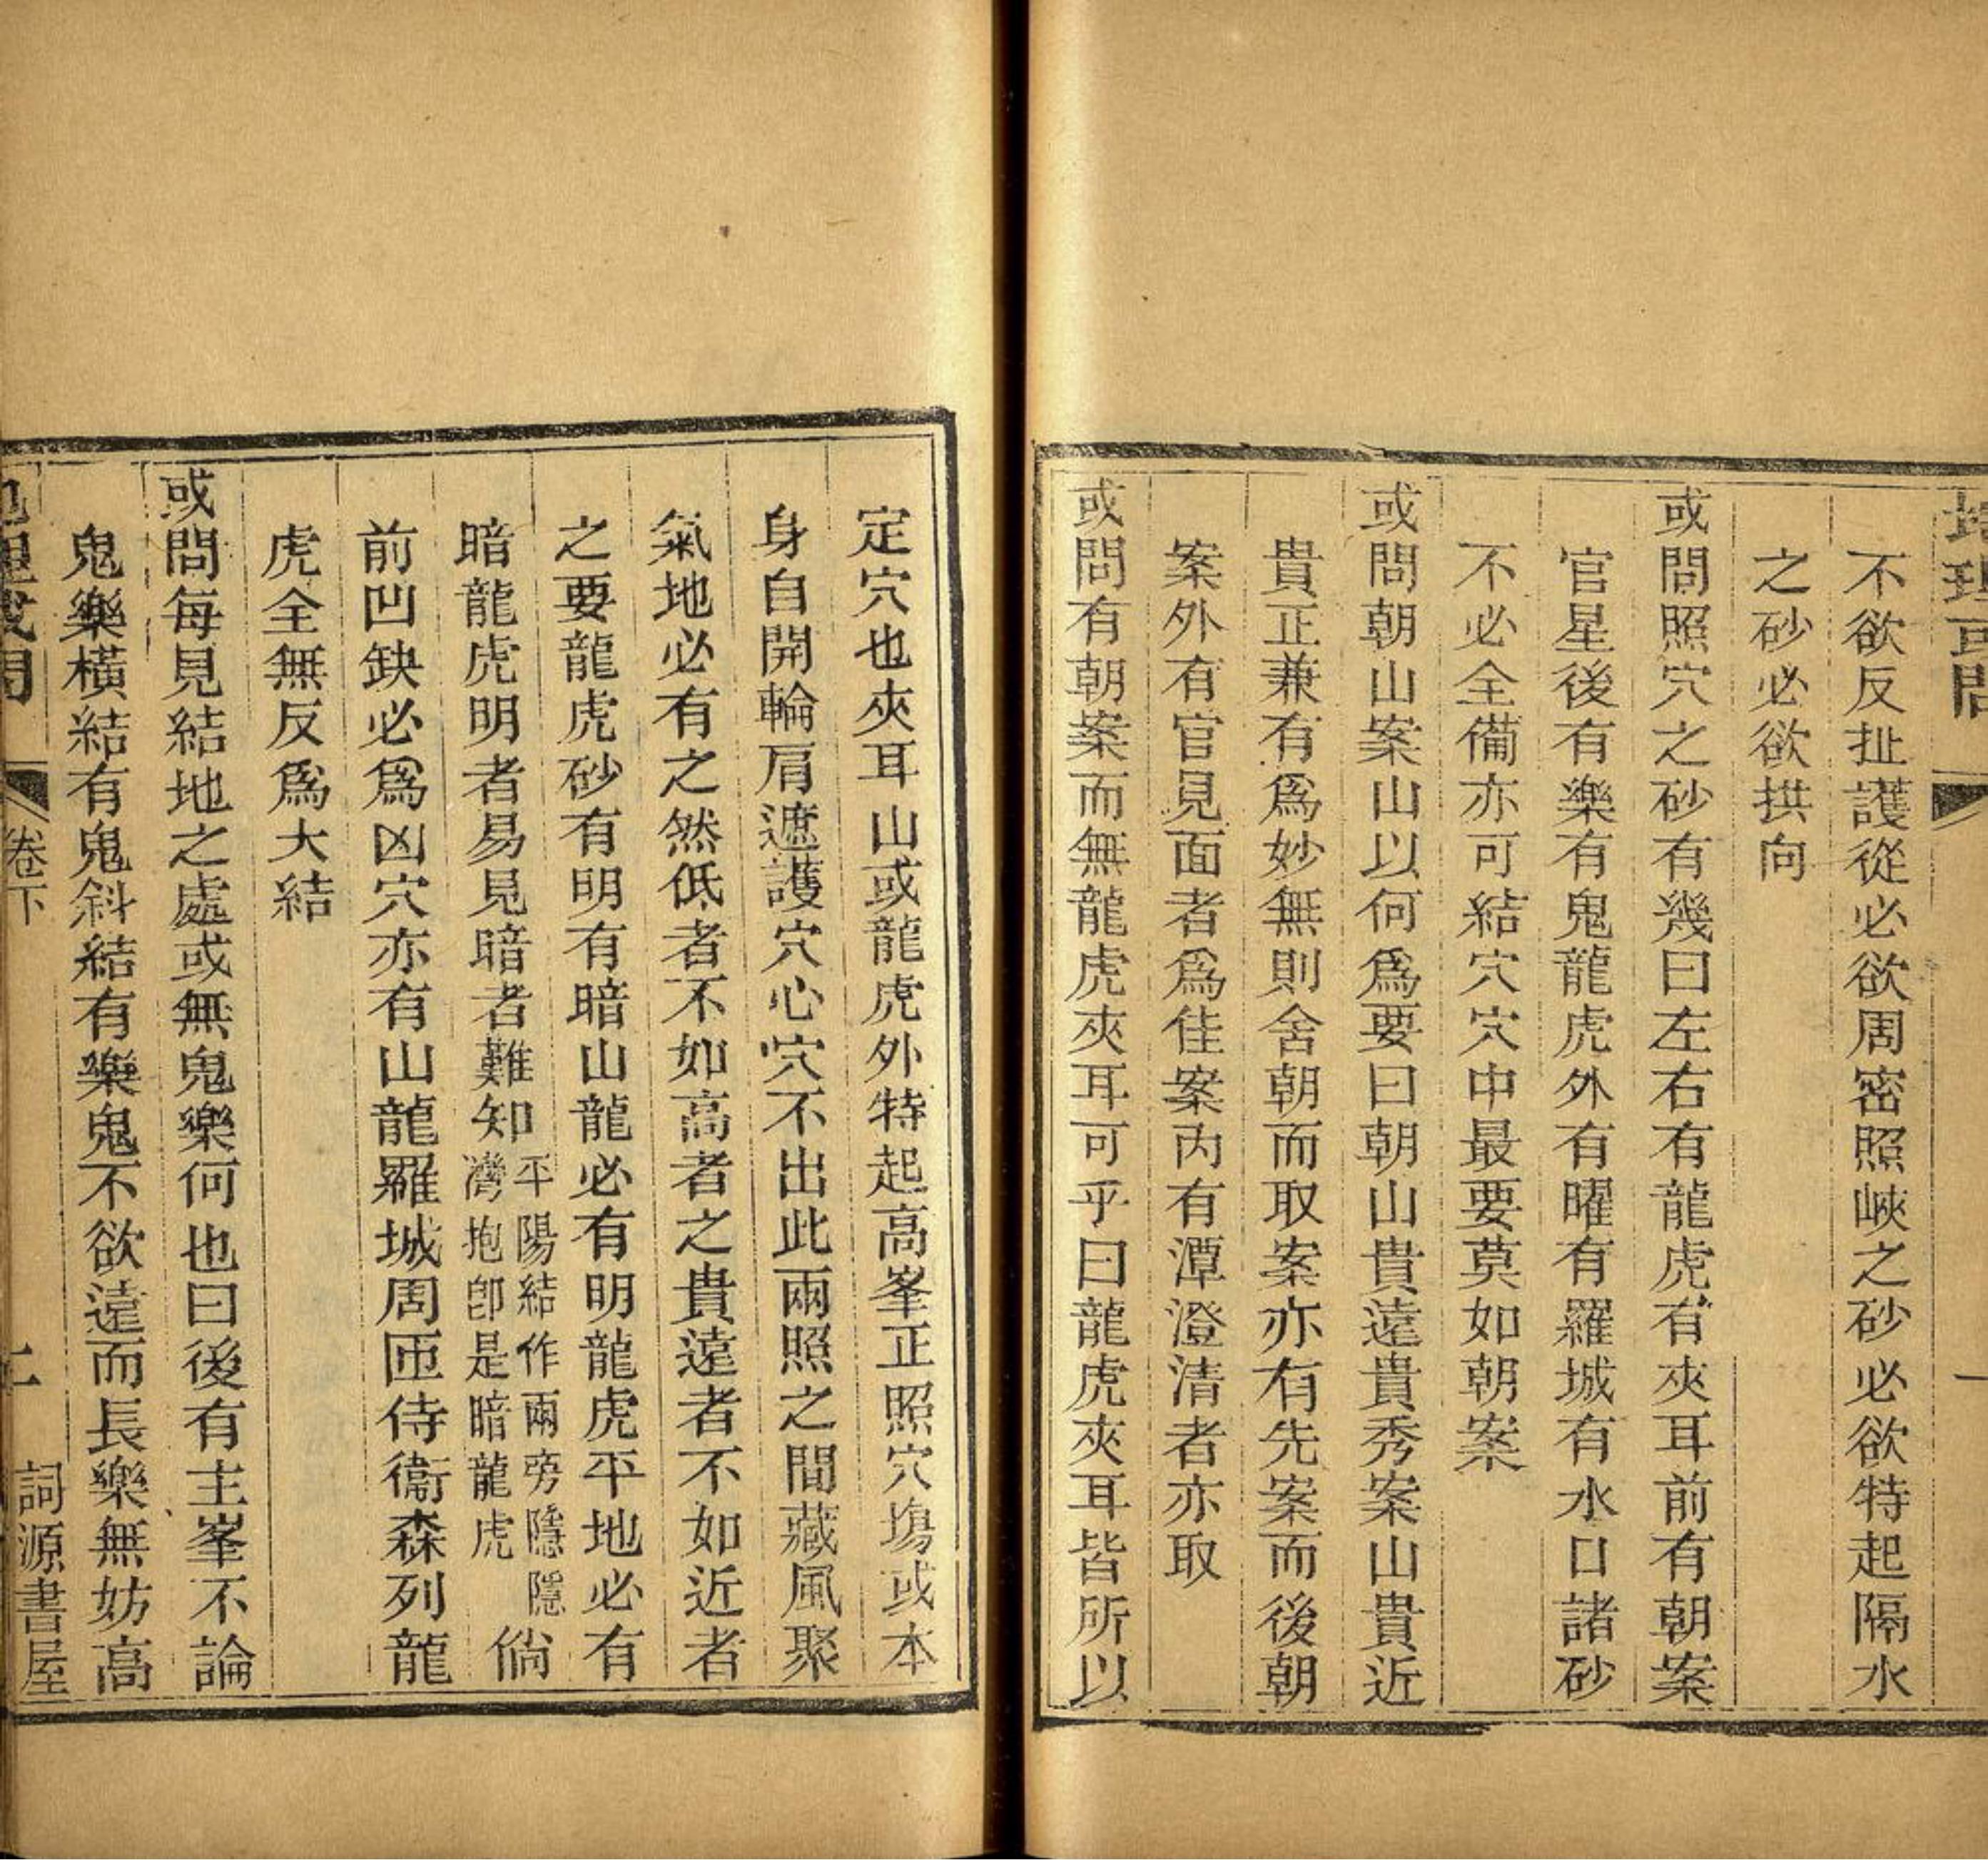 地理或問
一
不欲反扯護從必欲周密照峽之砂必欲特起隔水
之砂必欲拱向
或問照穴之砂有幾曰左右有龍虎有夾耳前有朝案
官星後有樂有鬼龍虎外有曜有羅城有水口諸砂
不必全備亦可結穴穴中最要莫如朝案
或問朝山案山以何爲要曰朝山貴遠貴秀案山貴近
貴正兼有爲妙無則舍朝而取案亦有先案而後朝
案外有官見面者爲佳案內有潭澄清者亦取
或問有朝案而無龍虎夾耳可乎曰龍虎夾耳皆所以
定穴也夾耳山或龍虎外特起高峯正照穴塲或本
身自開輪肩遮護穴心穴不出此兩照之間藏風聚
氣地必有之然低者不如高者之貴遠者不如近者
之要龍虎砂有明有暗山龍必有明龍虎平地必有
暗龍虎明者易見暗者難知平陽結作兩旁隱隱灣抱卽是暗龍虎倘
前凹缺必爲凶穴亦有山龍羅城周匝侍衞森列龍
虎全無反爲大結
或問每見結地之處或無鬼樂何也曰後有主峯不論
鬼樂橫結有鬼斜結有樂鬼不欲遠而長樂無妨高
地理或問
卷下
二
詞源書屋